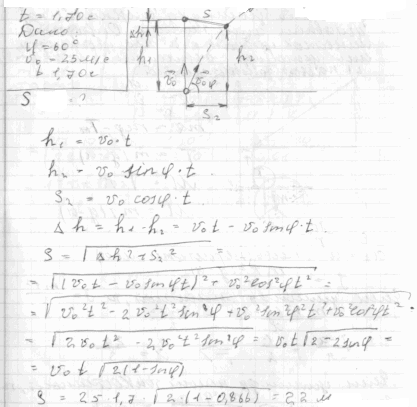 t = 1,70с
Дано
φ = 60°
v₀ = 25 м/с
t 1,70с
S ?
Δh h₁ S h₂
v₀ v₀ φ
S₂
h₁ = v₀ · t
h₂ = v₀ sinφ · t
S₂ = v₀ cosφ · t
Δh = h₁ - h₂ = v₀t - v₀sinφ · t
S = √Δh² + S₂² =
= √(v₀t - v₀sinφt)² + v₀²cos²φt² =
= √v₀²t² - 2v₀²t²sinφ + v₀²sin²φ²t² + v₀²cos²φt² .
= √2v₀t² - 2v₀²t²sinφ = v₀t√2 - 2sinφ =
= v₀t √2(1-sinφ)
S = 25 · 1,7 · √2·(1-0,866) = 22 м